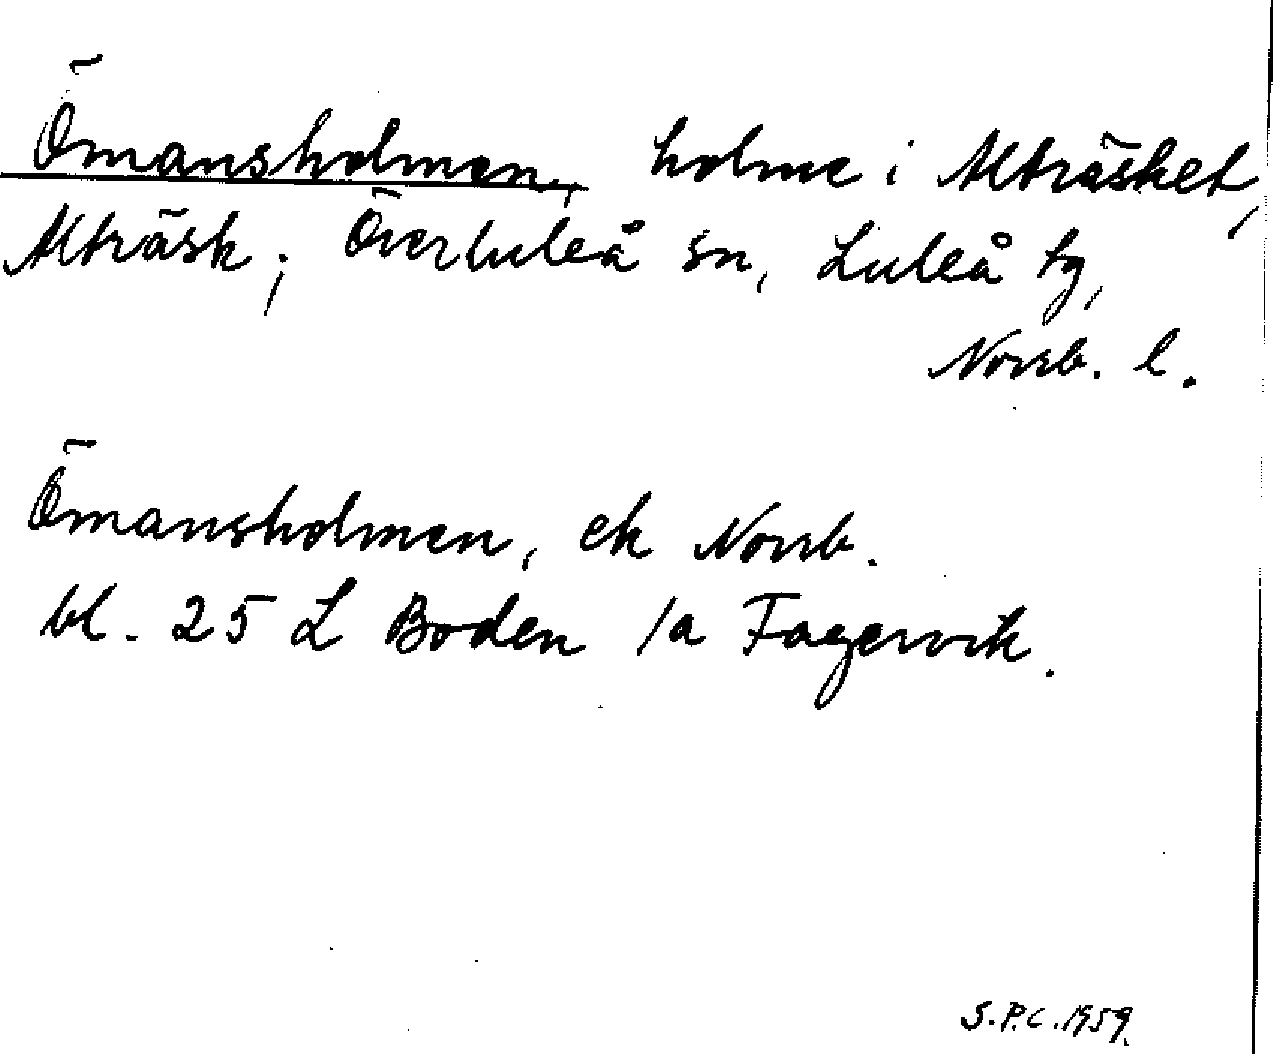 Ömansholmen, holme i Alträsket,
Alträsk; Överluleå sn, Luleå tg,
Norrb. l.
Ömansholmen, ek Norrb.
bl. 25 L Boden 1a Fagervik.
S.P.C. 1959.